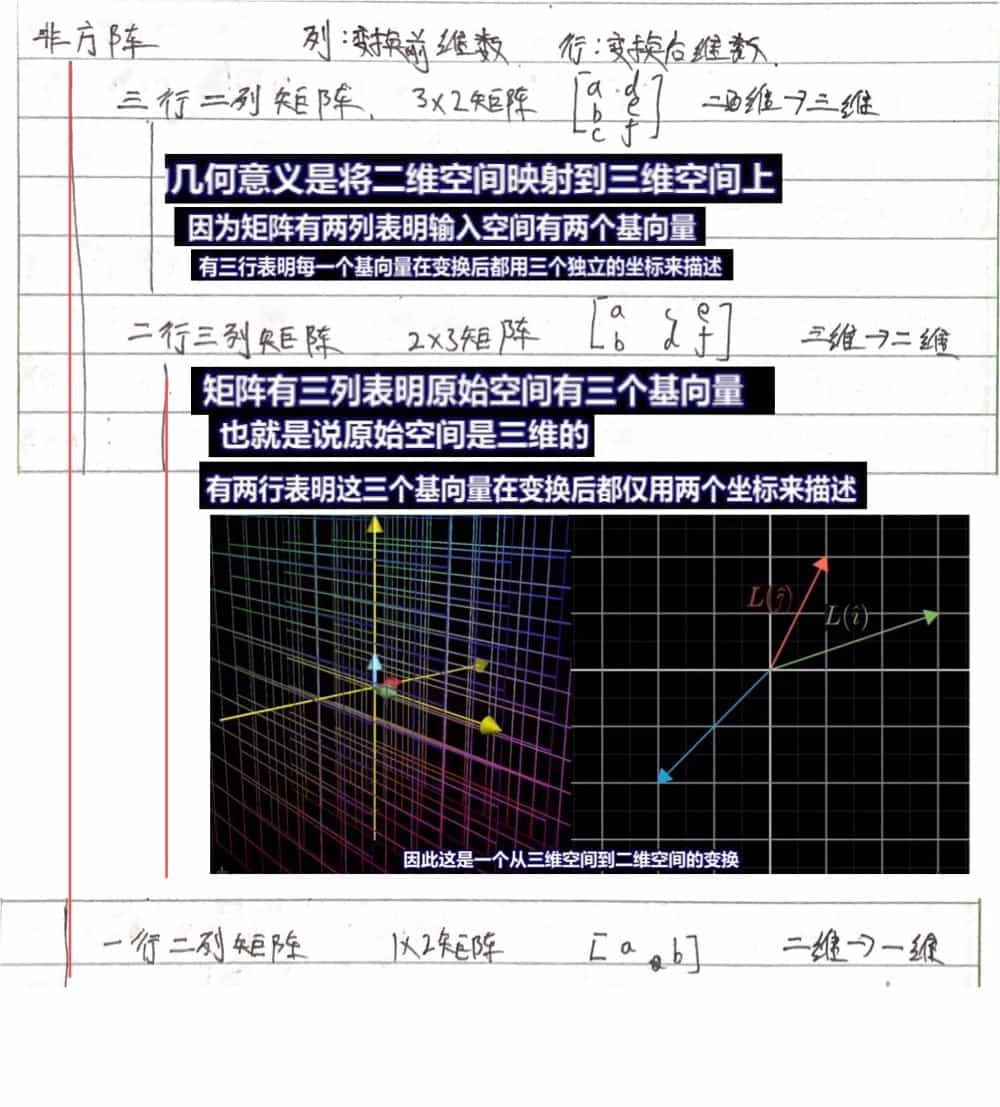 非方阵 列:变换前维数 行:变换后维数.
三行二列矩阵. 3×2矩阵 [a d b e c f] 二维→三维
几何意义是将二维空间映射到三维空间上
因为矩阵有两列表明输入空间有两个基向量
有三行表明每一个基向量在变换后都用三个独立的坐标来描述
二行三列矩阵 2×3矩阵 [a c e b d f] 三维→二维
矩阵有三列表明原始空间有三个基向量
也就是说原始空间是三维的
有两行表明这三个基向量在变换后都仅用两个坐标来描述
L(ĵ)
L(î)
因此这是一个从三维空间到二维空间的变换
一行二列矩阵 1×2矩阵 [a b] 二维→一维